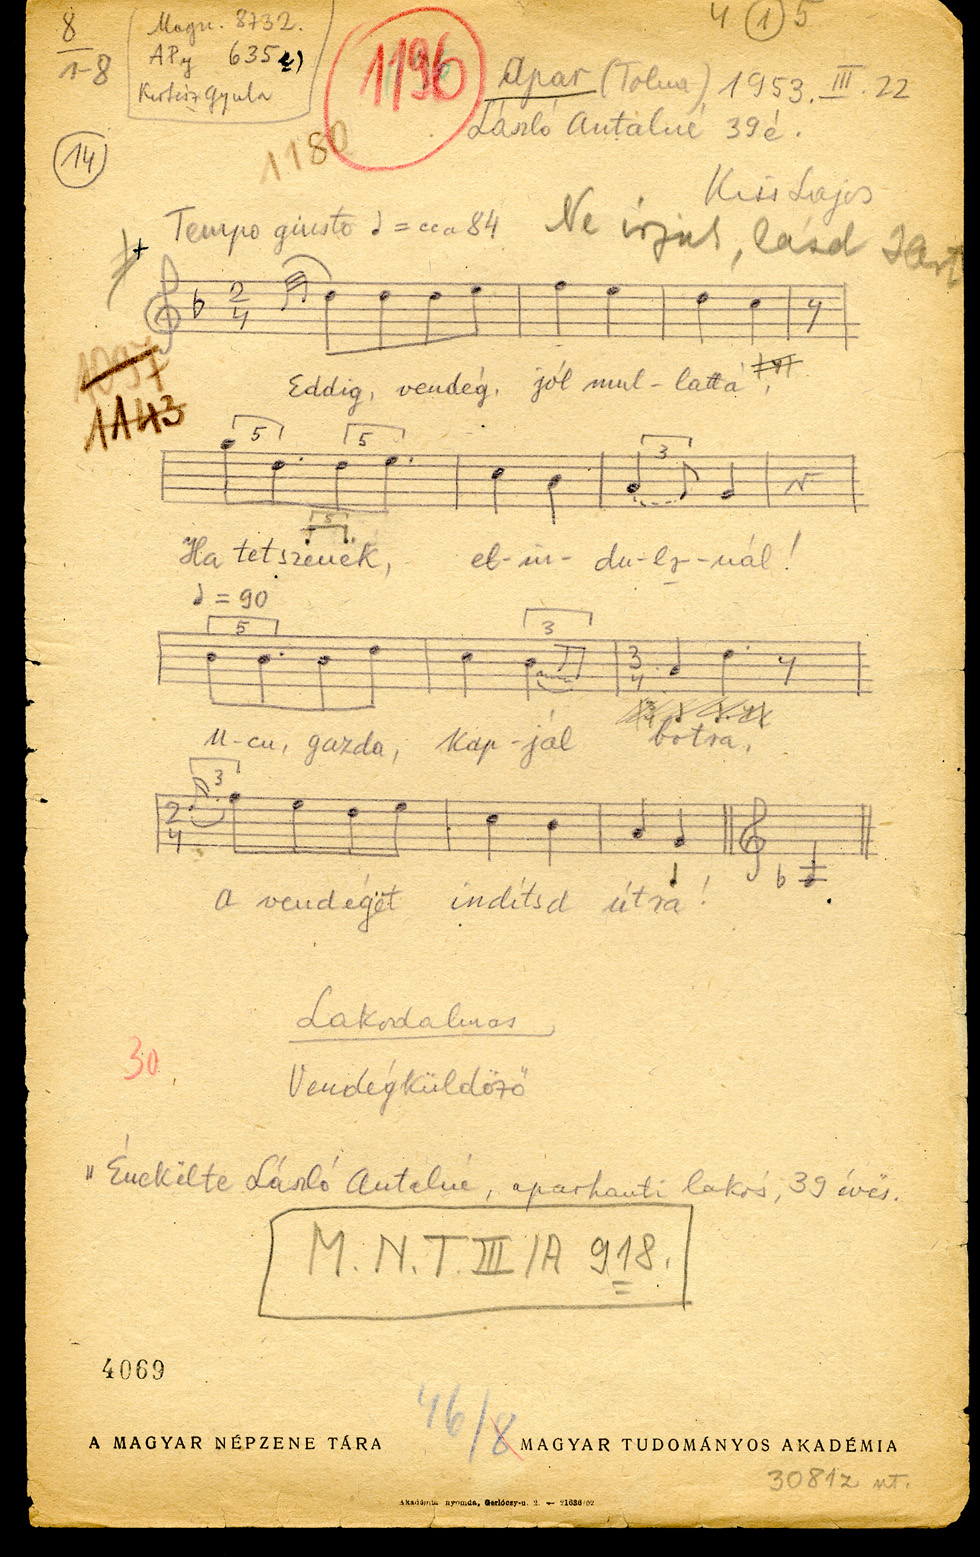 8 Magn. 8732. 4 ① 5
1-8 APy 635
Kertész Gyula
1196
Apar (Tolna) 1953. III. 22
László Antalné 39 é.
1180
14
Kiss Lajos
Tempo giusto ♩ = cca 84 Ne írjuk, lásd
2
4
1097
1143
Eddig, vendég, jól mul-lattá',
5 5 3
5
Ha tetszenék, el-in-du-lz-nál!
♩ = 90
5 3
3
4
U-cu, gazda, kap-jál botra,
3
2
4
A vendéget indítsd útra!
Lakodalmas
30
Vendégküldöző
"Énekelte László Antalné, aparhanti lakós, 39 éves.
M. N. T. III/A 918.
4069
46/8
A MAGYAR NÉPZENE TÁRA MAGYAR TUDOMÁNYOS AKADÉMIA
30812 nt.
Akadémia nyomda, Gerlóczy-u. 2. — 21636/52